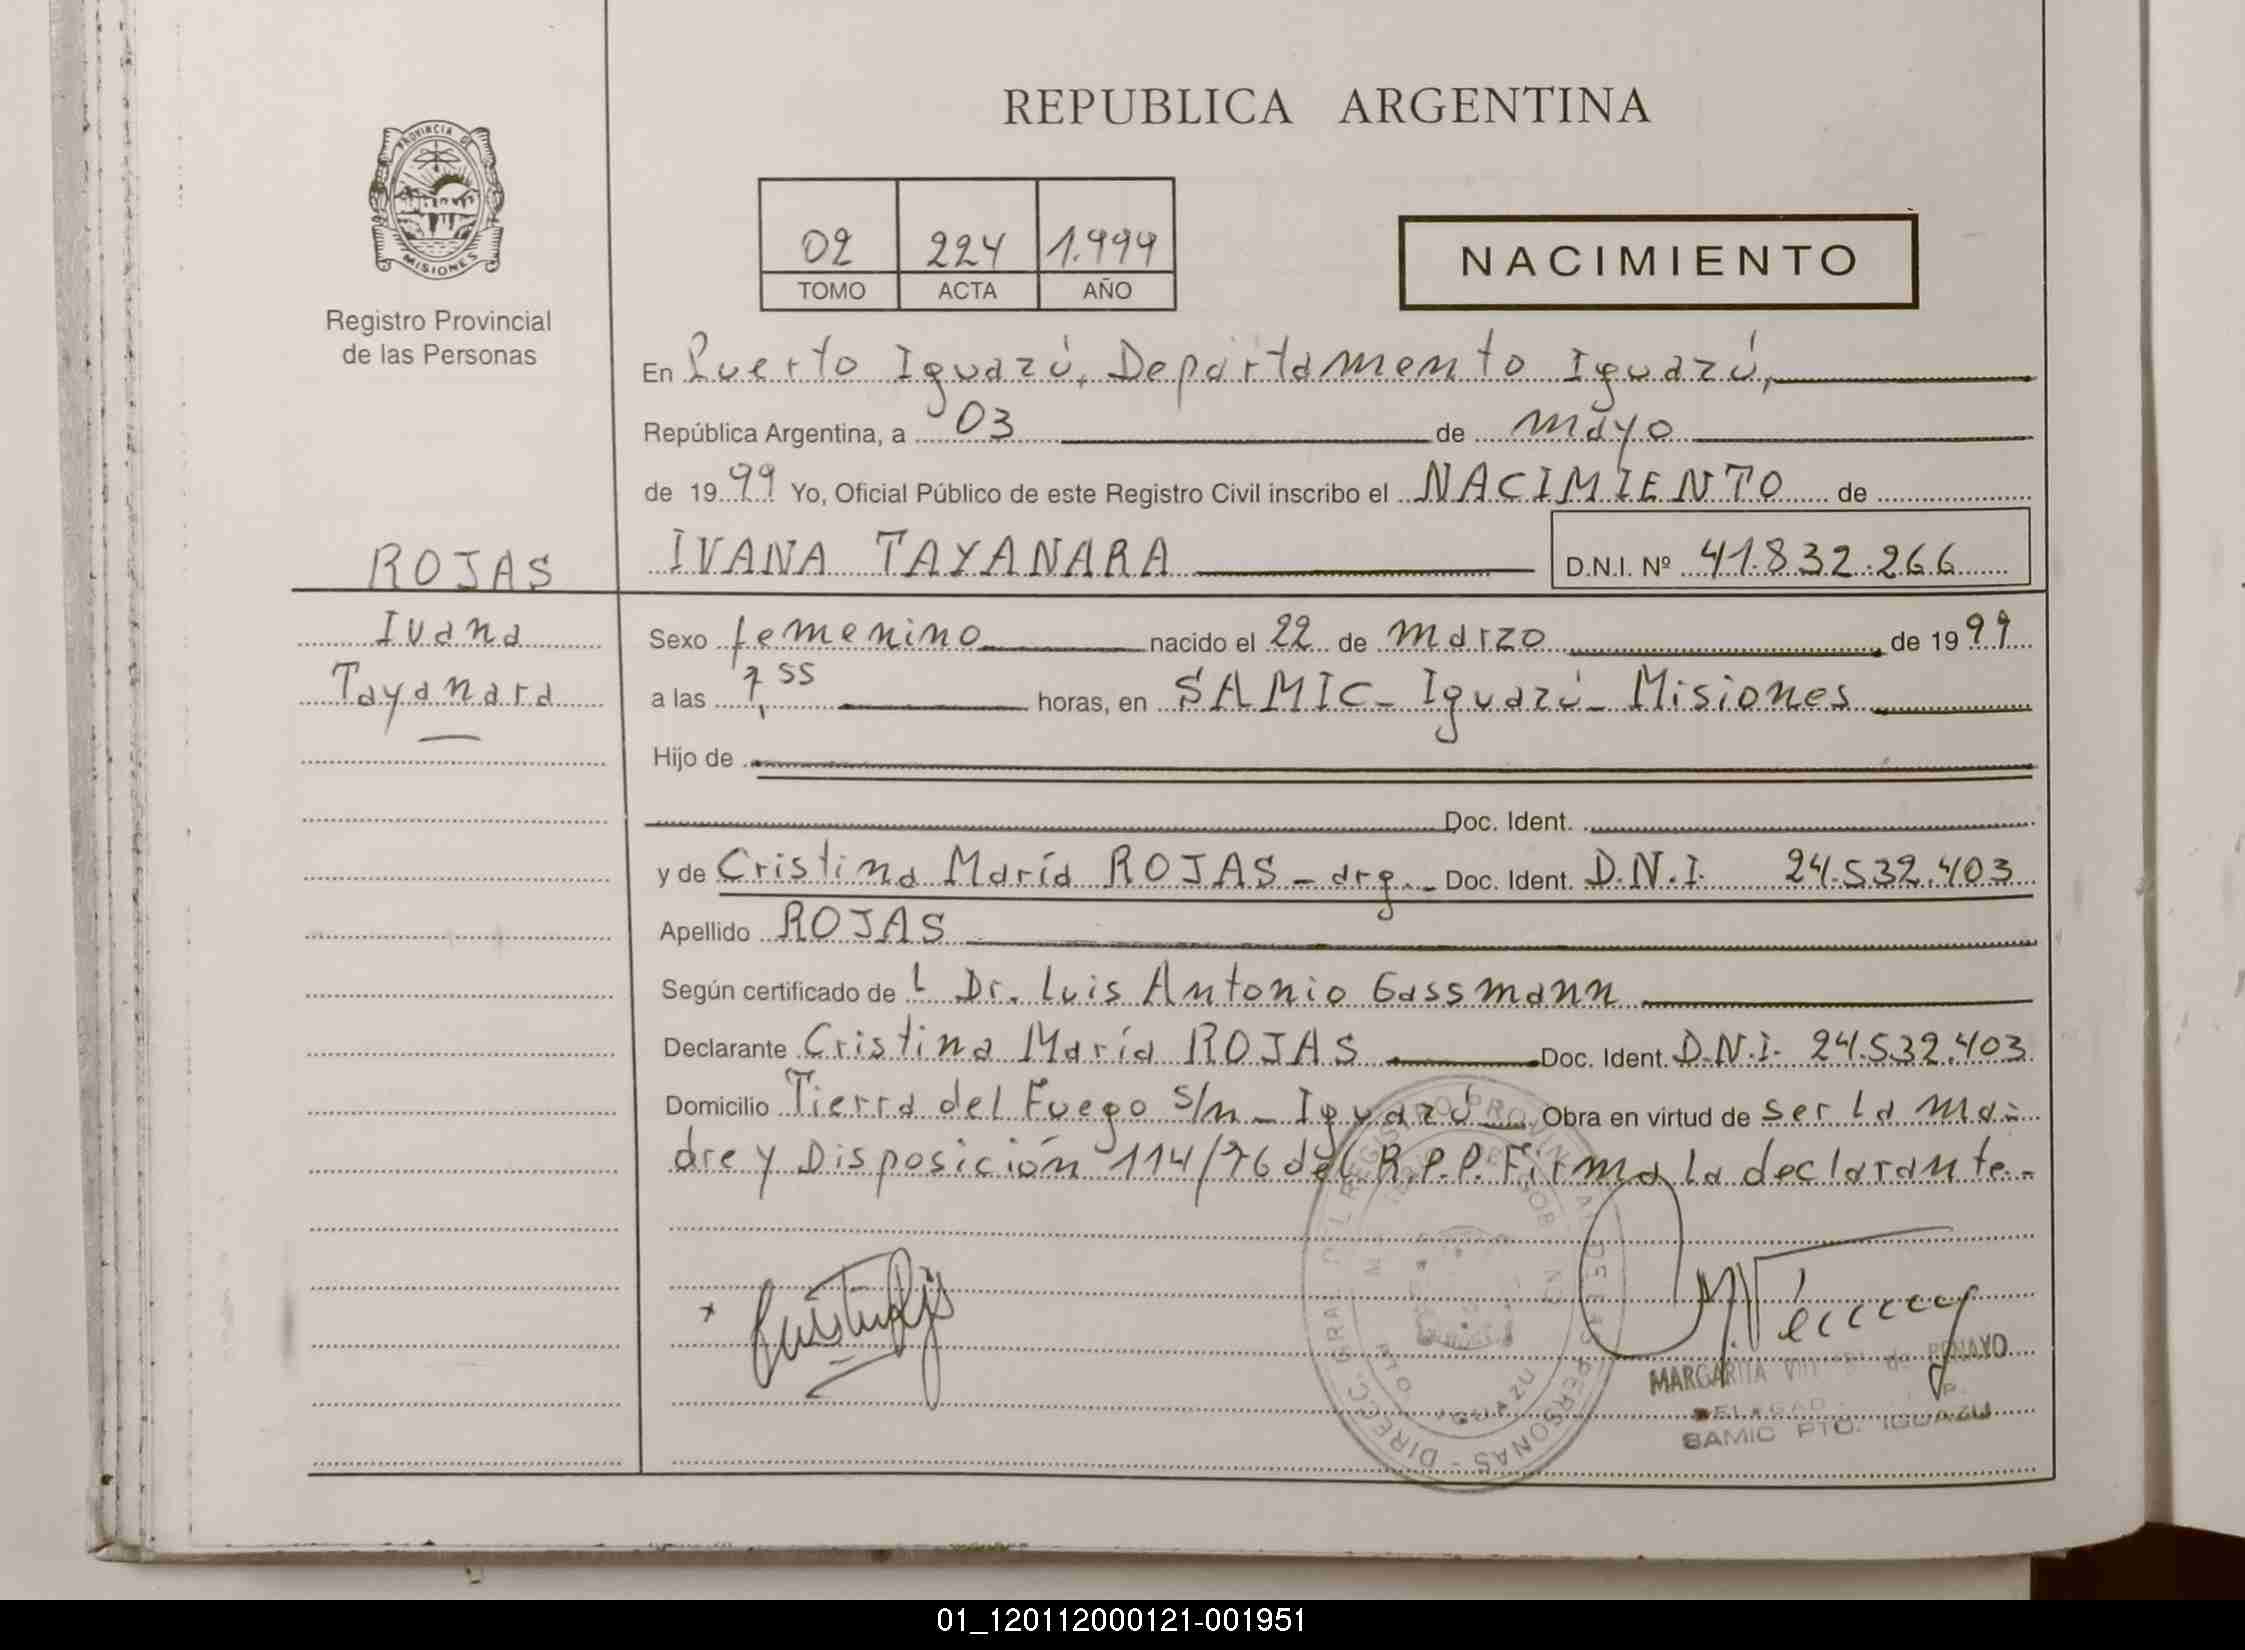 REPUBLICA ARGENTINA
PROVINCIA DE
MISIONES
Registro Provincial
de las Personas
02 224 1.999
TOMO ACTA AÑO
NACIMIENTO
En Puerto Iguazú, Departamento Iguazú,
República Argentina, a 03 de mayo
de 1999 Yo, Oficial Público de este Registro Civil inscribo el NACIMIENTO de
ROJAS
IVANA TAYANARA D.N.I. Nº 41.832.266
Ivana
Tayanara
Sexo femenino nacido el 22 de marzo de 1999
a las 7,55 horas, en SAMIC - Iguazú - Misiones
Hijo de
Doc. Ident.
y de Cristina María ROJAS - arg. - Doc. Ident. D.N.I. 24.532.403
Apellido ROJAS
Según certificado de l Dr. Luis Antonio Gassmann
Declarante Cristina María ROJAS Doc. Ident. D.N.I. 24.532.403
Domicilio Tierra del Fuego s/n - Iguazú Obra en virtud de ser la ma-
dre y Disposición 114/76 del R.P.P. Firma la declarante.-
DIRECC. GRAL. DEL REGISTRO PROVINCIAL DE LAS PERSONAS
IGUAZU
MARGARITA de PENAYO
SAMIC PTO. IGUAZU
01_120112000121-001951